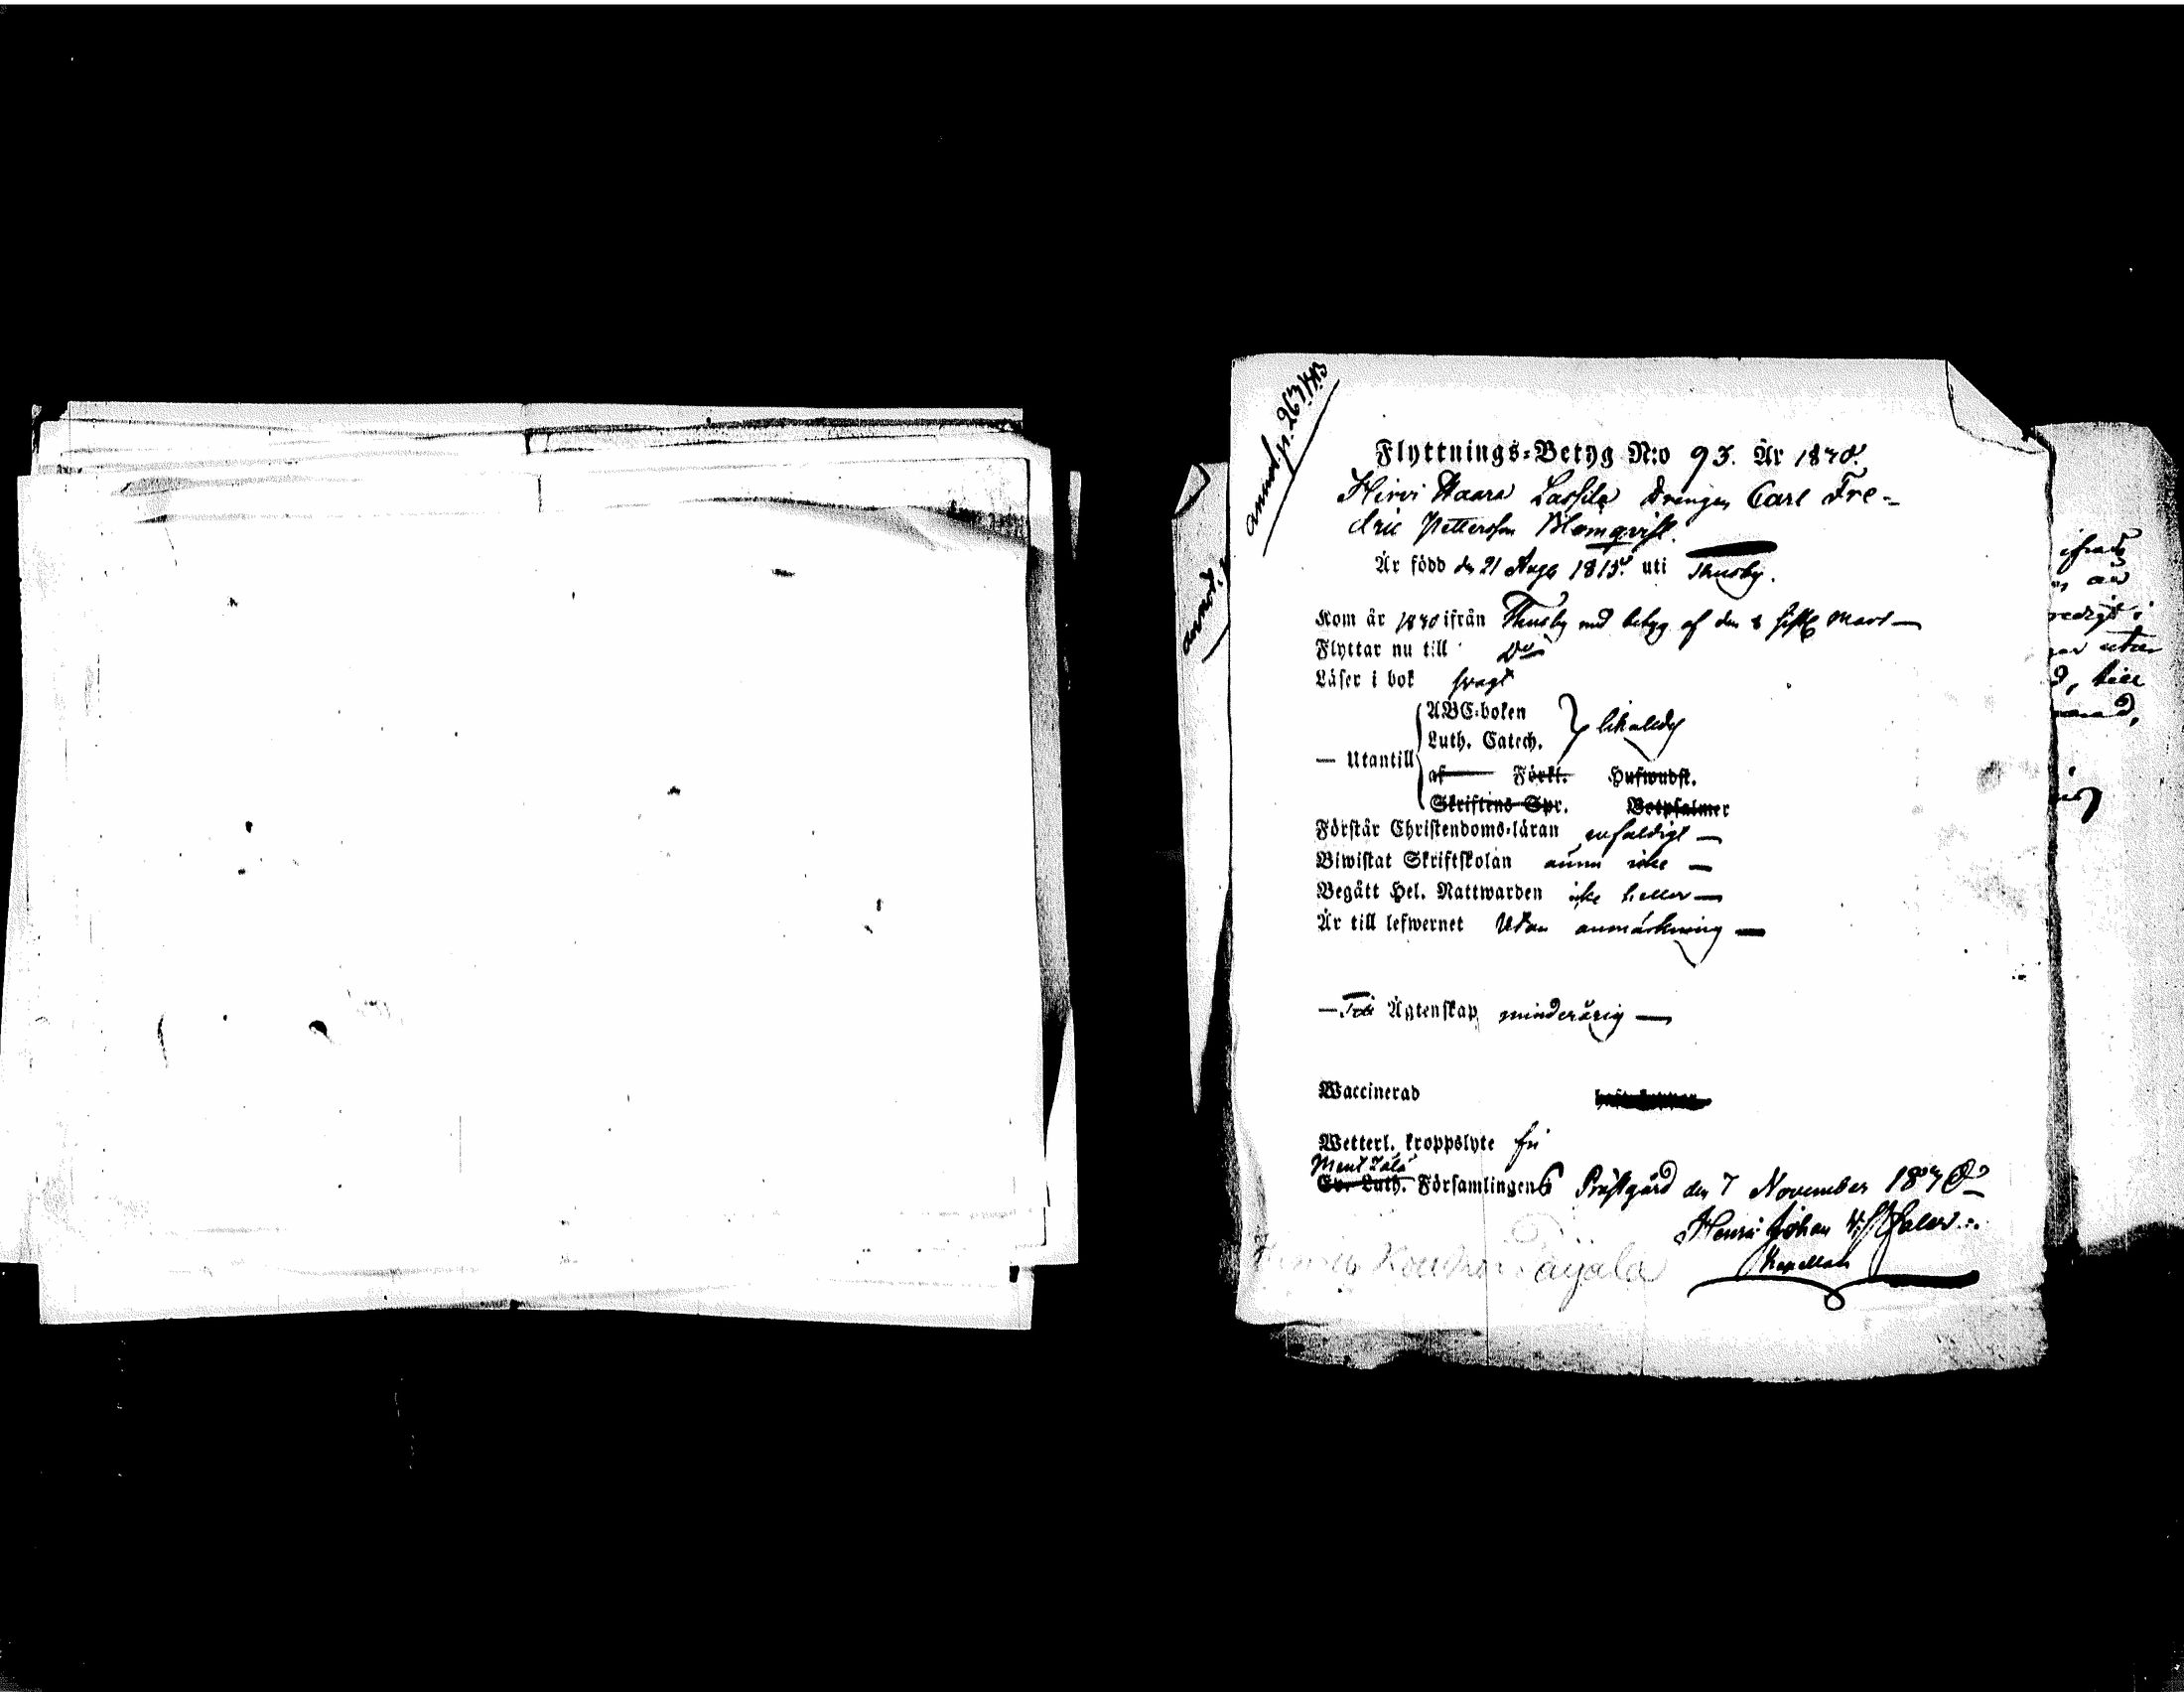 annot. p. 267.
Flyttnings-Betyg N:o 93. År 1830.
Hirvi Haara Lassila Drengen Carl Fre-
dric Pettersson Blomqvist.
Är född d. 21 Aug. 1815. uti Thusby.
Kom år 1830 ifrån Thusby med betyg af den 8 sistl. Mars —
Flyttar nu till Do
Läser i bok svagt
ABC-boken
Luth. Catech. } likaledes
— Utantill
af Förkl. Hufwudst.
Skriftens Spr. Botpsalmer
Förstår Christendoms-läran enfaldigt —
Biwistat Skriftskolan ännu icke —
Begått Hel. Nattwarden icke heller —
Är till lefwernet utan anmärkning —
— Till Ägtenskap minderårig —
Waccinerad
Wetterl. kroppslyte fri
Mentzälä
Ev. Luth. Församlingens Prästgård den 7 November 1830
Henric Johan
Kapellan
Päyälä
annot.
ifrån